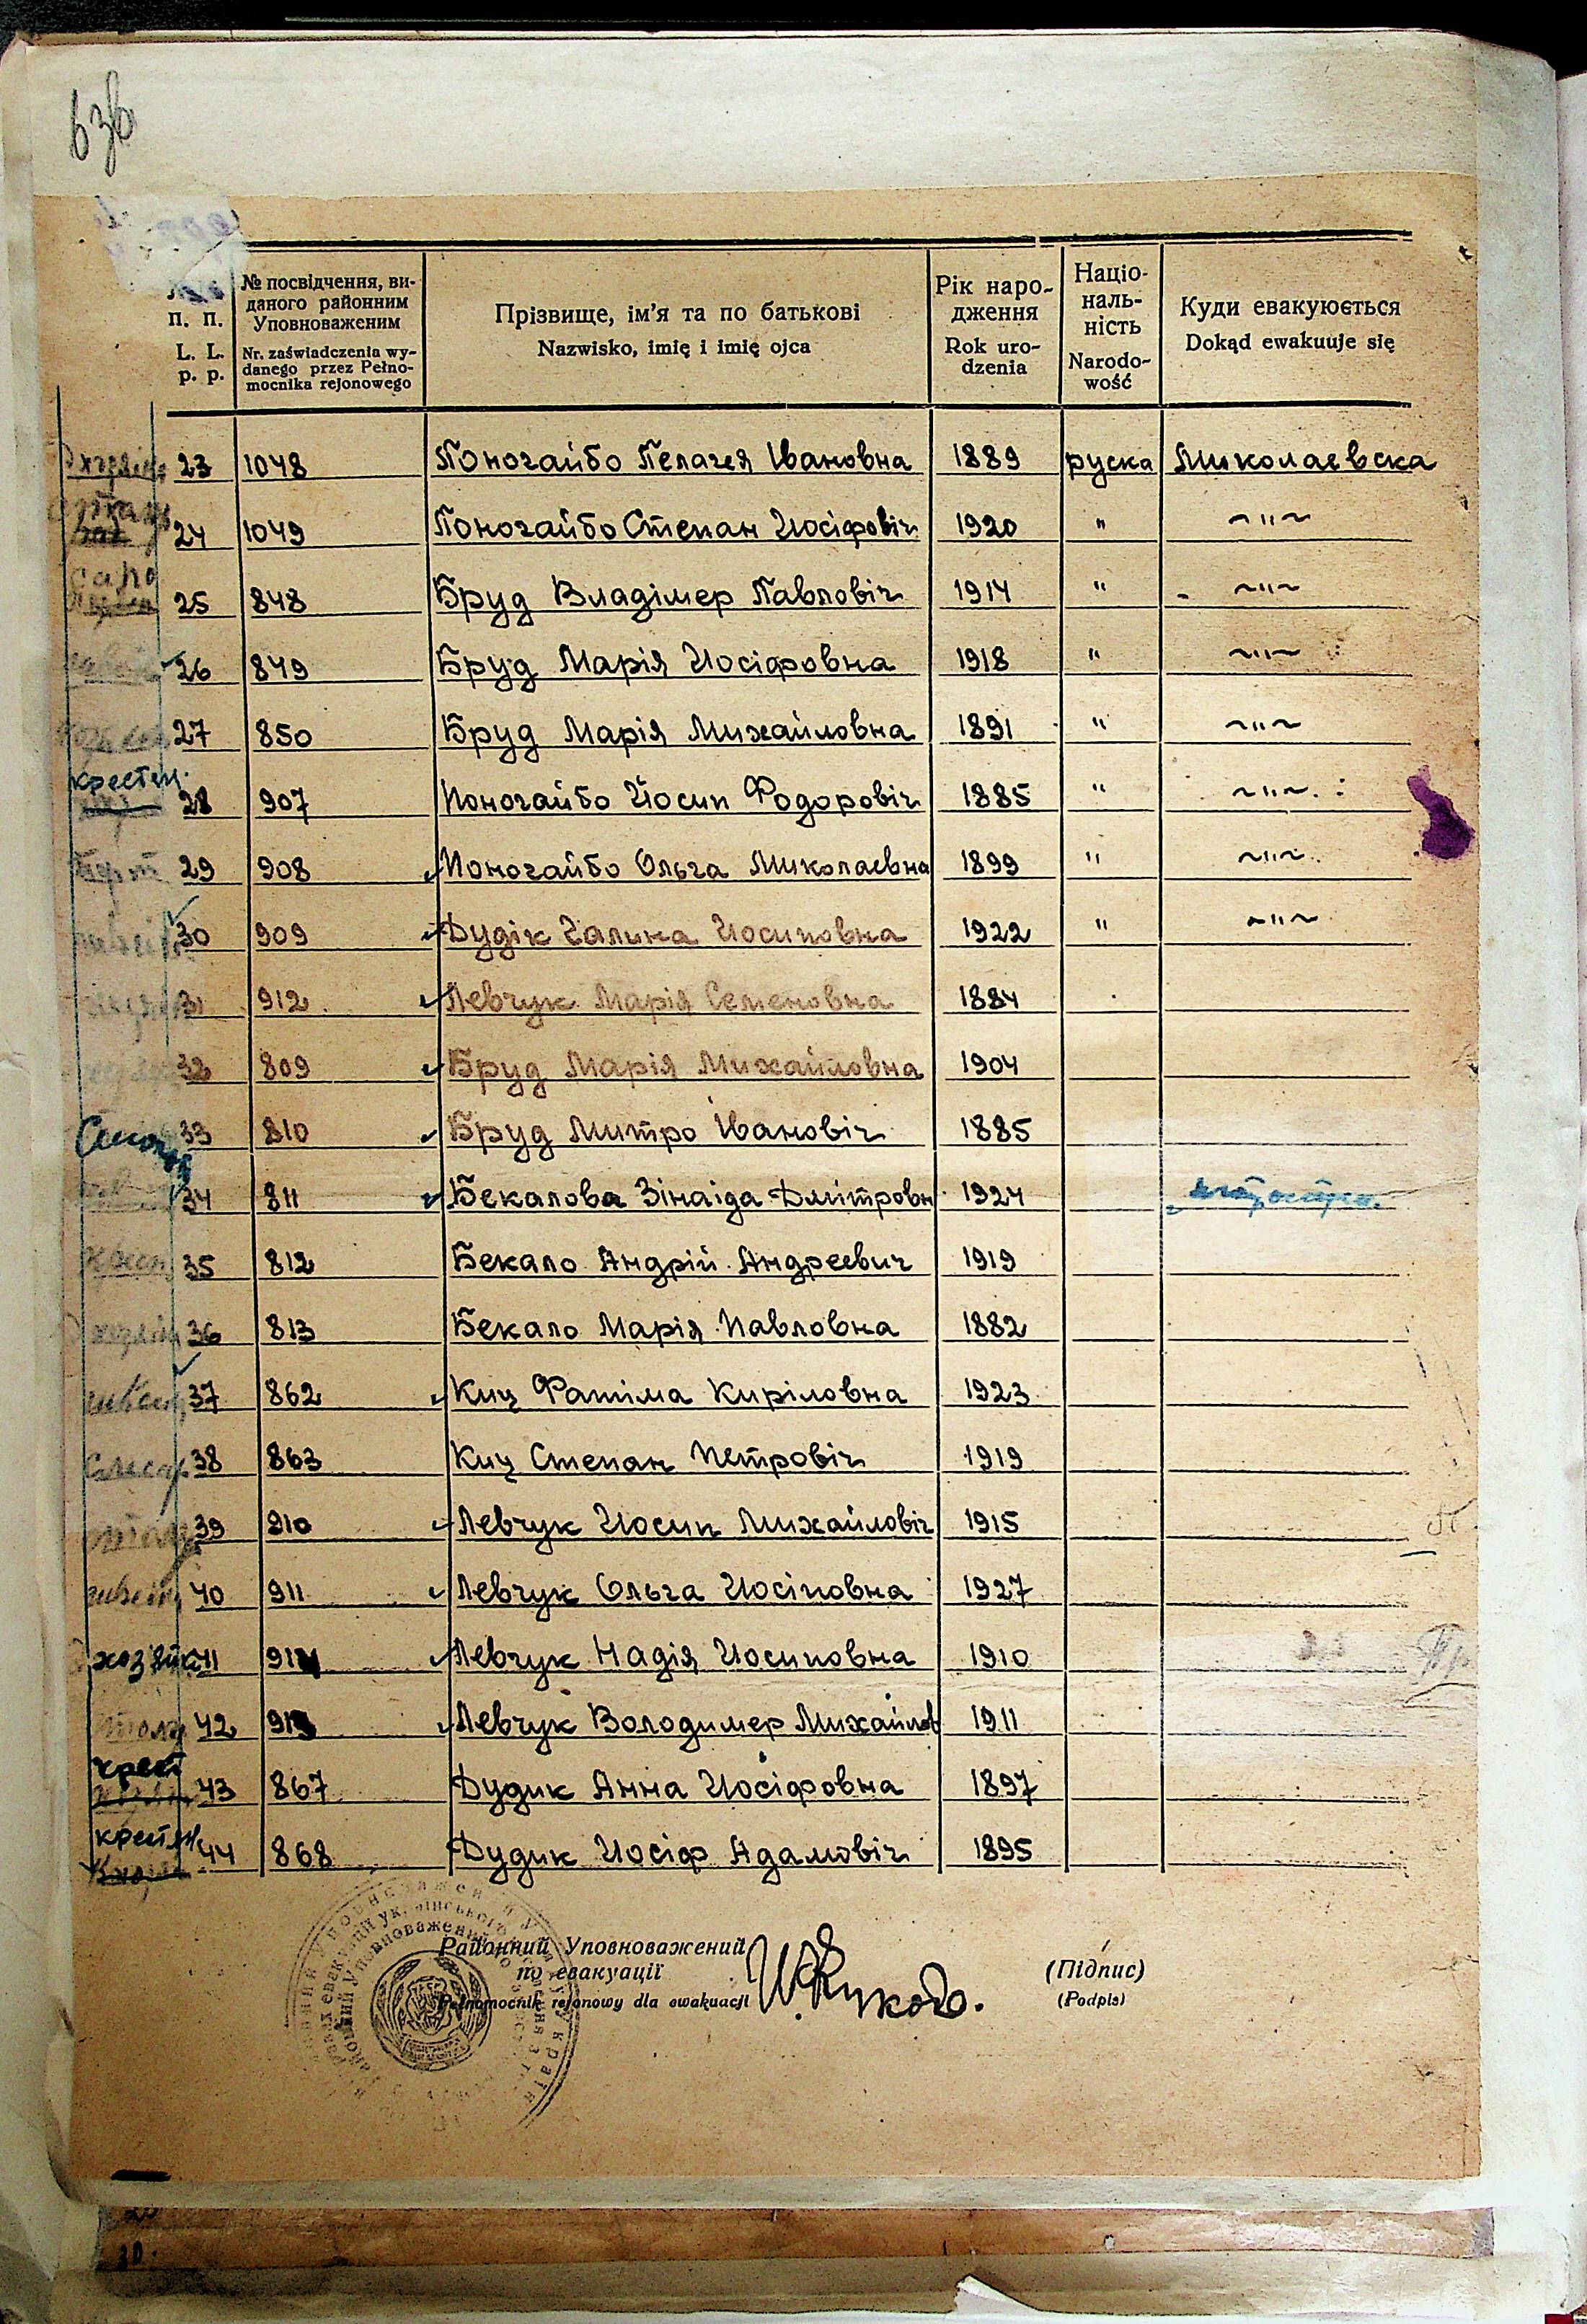 636
п. п.
L. L.
p. p.
№ посвідчення, ви-
даного районним
Уповноваженим
Nr. zaświadczenia wy-
danego przez Pełno-
mocnika rejonowego
Прізвище, ім'я та по батькові
Nazwisko, imię i imię ojca
Рік наро-
дження
Rok uro-
dzenia
Націо-
наль-
ність
Narodo-
wość
Куди евакуюється
Dokąd ewakuuje się
23 1048 Поногайбо Пелагея Івановна 1889 руска Миколаевска
24 1049 Поногайбо Степан Иосіфовіч 1920 " ~"~
25 848 Бруд Владімер Павловіч 1914 " ~"~
26 849 Бруд Марія Иосіфовна 1918 " ~"~
27 850 Бруд Марія Михайловна 1891 " ~"~
крестян.
28 907 Поногайбо Йосип Фодоровіч 1885 " ~"~
29 908 Поногайбо Ольга Миколаевна 1899 " ~"~
30 909 Дудік Галина Иосиповна 1922 " ~"~
31 912 Левчук Марія Семеновна 1884
32 809 Бруд Марія Михайловна 1904
33 810 Бруд Митро Івановіч 1885
34 811 Бекалова Зінаіда Дмітровн 1924
35 812 Бекало Андрій Андреевич 1919
36 813 Бекало Марія Павловна 1882
37 862 Киц Фатіма Кириловна 1923
слесар 38 863 Киц Степан Петровіч 1919
39 910 Левчук Иосип Михайловіч 1915
40 911 Левчук Ольга Иосіповна 1927
хозяйк 41 914 Левчук Надія Иосиповна 1910
42 913 Левчук Володимер Михайлов 1911
крест
43 867 Дудик Анна Иосіфовна 1897
крестян
44 868 Дудик Иосіф Адамовіч 1895
Районний Уповноважений
по евакуації
Pełnomocnik rejonowy dla ewakuacji
(Підпис)
(Podpis)